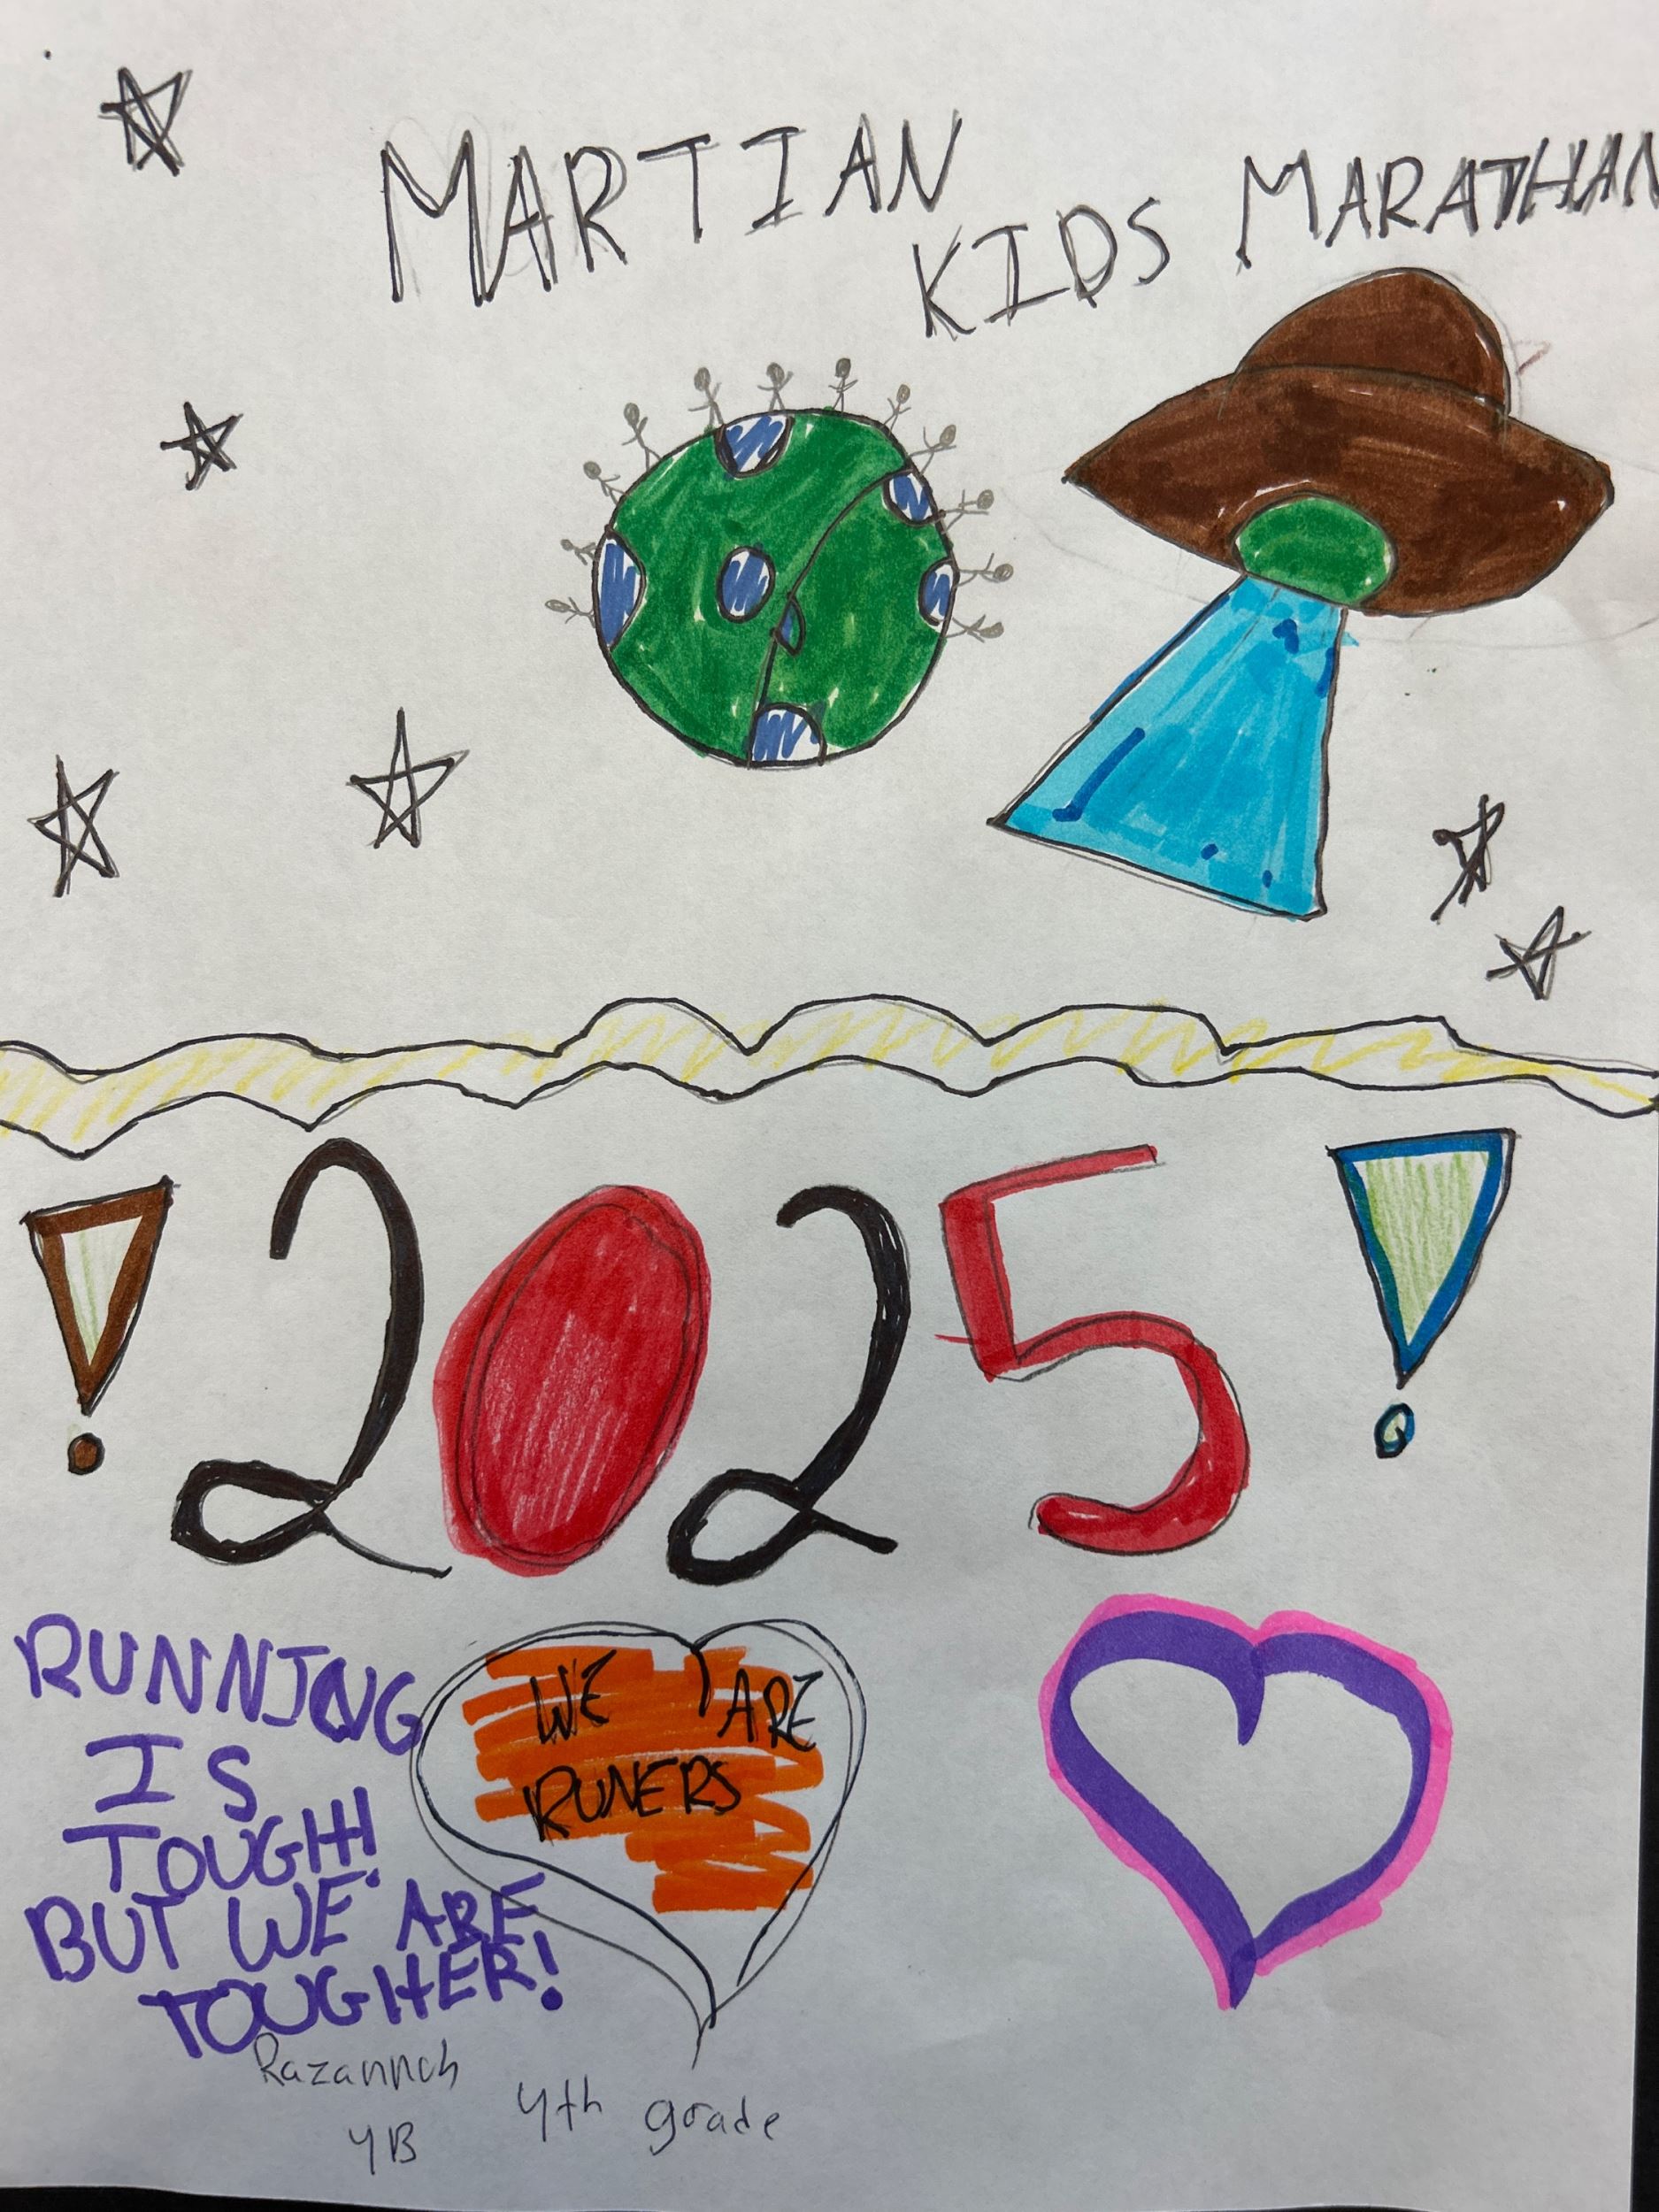 MARTIAN KIDS MARATHAN
! 2025 !
RUNNING
IS
TOUGH!
BUT WE ARE
TOUGHER!
WE ARE
RUNERS
4th grade
4B